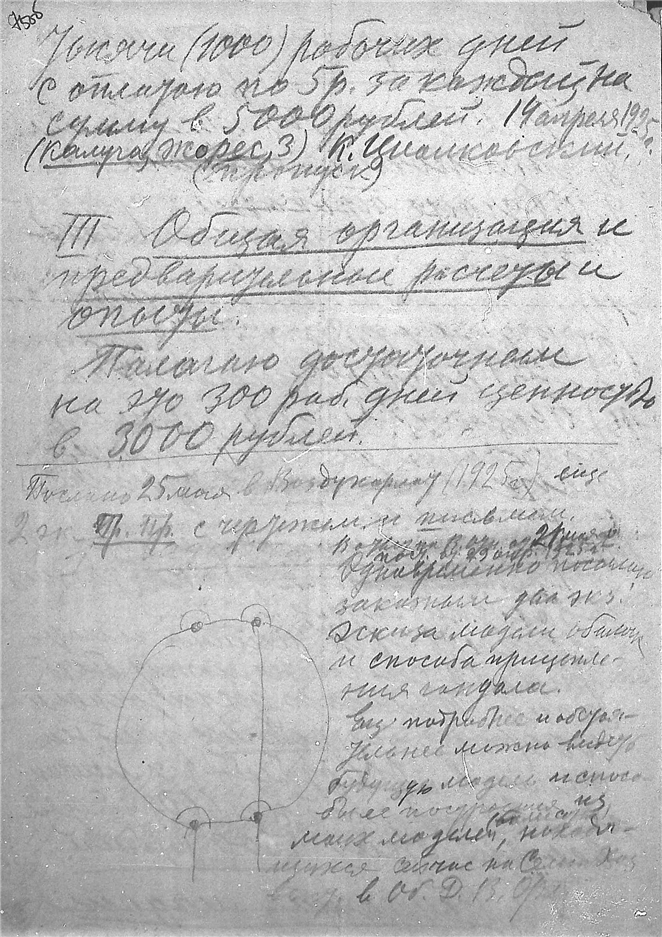 Тысячи (1000) рабочих дней
с оплатою по 5 р. за каждый на
сумму в 5000 рублей. 14 апреля 1925 г.
(Калуга, Жорес, 3) К. Циолковский.
(пропуск)
III Общая организация и
предварительные расчеты и
опыты.
Полагаю достаточным
на это 300 раб. дней ценностью
в 3000 рублей.
Послано 25 мая в (1925 г.) еще
2 эк. Пр. Пр. с чертежом и письмом
Одновременно посылаю
заказным два экз.
эскиза модели оболочки
и способа прицепле-
ния гондола.
Еще подробнее и обстоя-
тельнее можно видеть
будущую модель и спосо-
бы ее построения из
моих моделей, находя-
щихся сейчас на
в Об. Д. В.